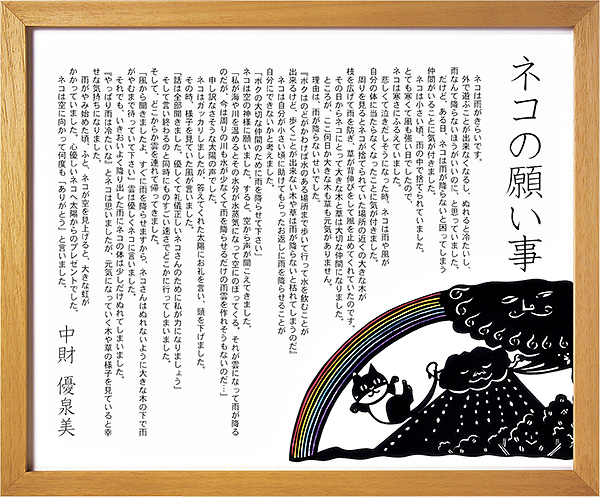 ネコの願い事
ネコは雨がきらいです。
外で遊ぶことが出来なくなるし、ぬれると冷たいし、
雨なんて降らないほうがいいのに、と思っていました。
だけど、ある日、ネコは雨が降らないと困ってしまう
仲間がいることに気が付きました。
ネコは小さい頃、雨の中で捨てられていました。
とても寒くて風も強い日でしたので、
ネコは寒さにふるえていました。
悲しくて泣きだしそうになった時、ネコは雨や風が
自分の体に当たらなくなったことに気が付きました。
周りを見るとネコが捨てられていた場所の近くの大きな木が
枝を広げて雨を防ぎ、草が背のびをして風を止めてくれていたのです。
その日からネコにとって大きな木と草は大切な仲間になりました。
ところが、ここ何日か大きな木も草も元気がありません。
理由は、雨が降らないせいでした。
『ボクはのどがかわけば水のある場所まで歩いて行って水を飲むことが
出来るけど、歩くことが出来ない木や草は雨が降らないと枯れてしまうのだ』
ネコは自分が小さい頃に助けてもらったお返しに雨を降らせることが
自分にできないかと考えました。
「ボクの大切な仲間のために雨を降らせて下さい」
ネコは空の神様に願いました。すると、空から声が聞こえてきました。
「私が海や川を温めるとその水分が水蒸気になって空にのぼってくる。それが雲になって雨が降る
のだが、今は周りの川も水が少なくて雨を降らせるだけの雨雲を作れそうもないのだ…」
申し訳なさそうな太陽の声でした。
ネコはガッカリしましたが、答えてくれた太陽にお礼を言い、頭を下げました。
その時、様子を見ていた風が言いました。
「話は全部聞きました。優しくて礼儀正しいネコさんのために私が力になりましょう」
そして言い終わるのと同時にものすごい速さでどこかに行ってしまいました。
そして、どこからか雲を連れて帰ってきました。
「風から聞きましたよ。すぐに雨を降らせますから、ネコさんはぬれないように大きな木の下で雨
がやむまで待っていて下さい」雲は優しくネコに言いました。
それでも、いきおいよく降り出した雨にネコの体は少しだけぬれてしまいました。
『やっぱり雨は冷たいな』とネコは思いましたが、元気になっていく木や草の様子を見ていると幸
せな気持ちになりました。
雨がやみ始めた頃、ふと、ネコが空を見上げると、大きな虹が
かかっていました。心優しいネコへ太陽からのプレゼントでした。
ネコは空に向かって何度も「ありがとう」と言いました。
中財 優泉美